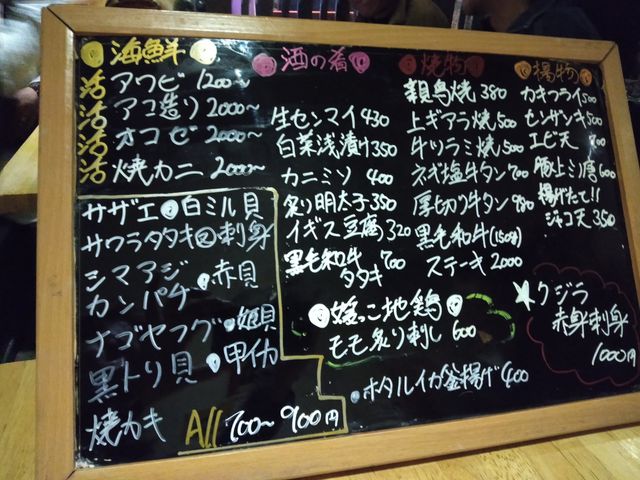 海鮮
活アワビ 1200〜
活アコ造り 2000〜
活オコゼ 2000〜
活焼カニ 2000〜
サザエ 白ミル貝
サワラタタキ 刺身
シマアジ
カンパチ 赤貝
ナゴヤフグ
黒トリ貝 甲イカ
焼カキ All 700〜900円
酒の肴
生センマイ 430
白菜浅漬け 350
カニミソ 400
炙り明太子 350
イギス豆腐 320
黒毛和牛
タタキ 700
地鶏
モモ炙り刺し 600
ホタルイカ釜揚げ 400
焼物
親鳥焼 380
上ギアラ焼 500
牛ツラミ焼 500
ネギ塩牛タン 700
厚切り牛タン 980
黒毛和牛(150g)
ステーキ 2000
揚物
カキフライ 500
センザンキ 500
エビ天
豚上ミノ 600
揚げたて!!
ジャコ天 350
★クジラ
赤身刺身
1000円